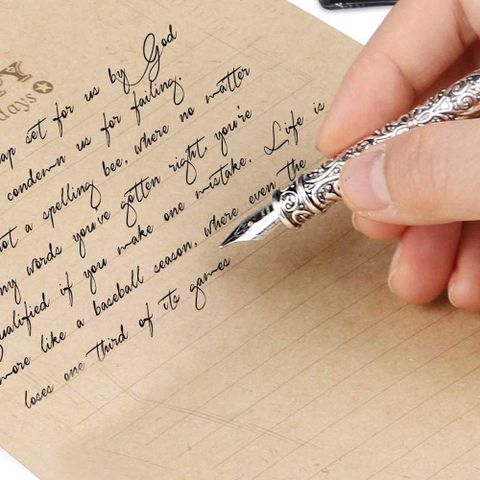 days
ap set for us by God
condemn us for failing.
ot a spelling bee, where no matter
ny words you've gotten right, you're
ualified if you make one mistake. Life is
more like a baseball season, where even the
loses one third of its games